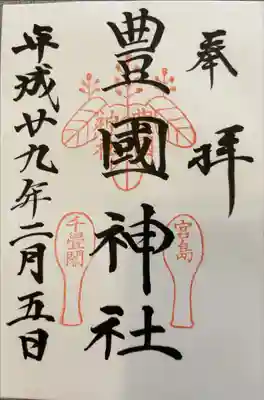 奉拝
豊國神社
宮島
千畳閣
平成廿九年二月五日